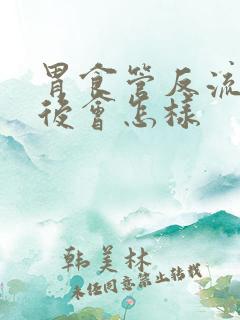 胃食管反流
後會怎樣
韩美林
未经同意禁止转载